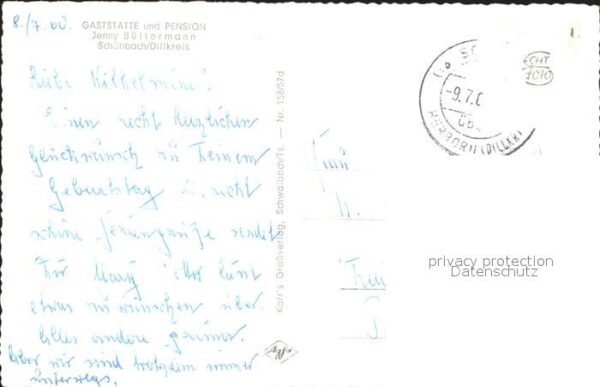 8./7.60.
GASTSTÄTTE und PENSION
Jenny Büttermann
Schönbach/Dillkreis
Liebe Wilhelmine!
Einen recht herzlichen
Glückwunsch zu Deinem
Geburtstag u. recht
schöne Feriengrüße sendet
Dir Mary. Wetter lässt
etwas zu wünschen über.
Alles andere prima.
Aber wir sind trotzdem immer
unterwegs.
Korr's Großverlag, Schwalbach/Ts. — Nr. 158/67d
Agfa
-9.7.6
HERBORN (DILLKR)
ECHT
FOTO
Frau
W.
privacy protection
Datenschutz